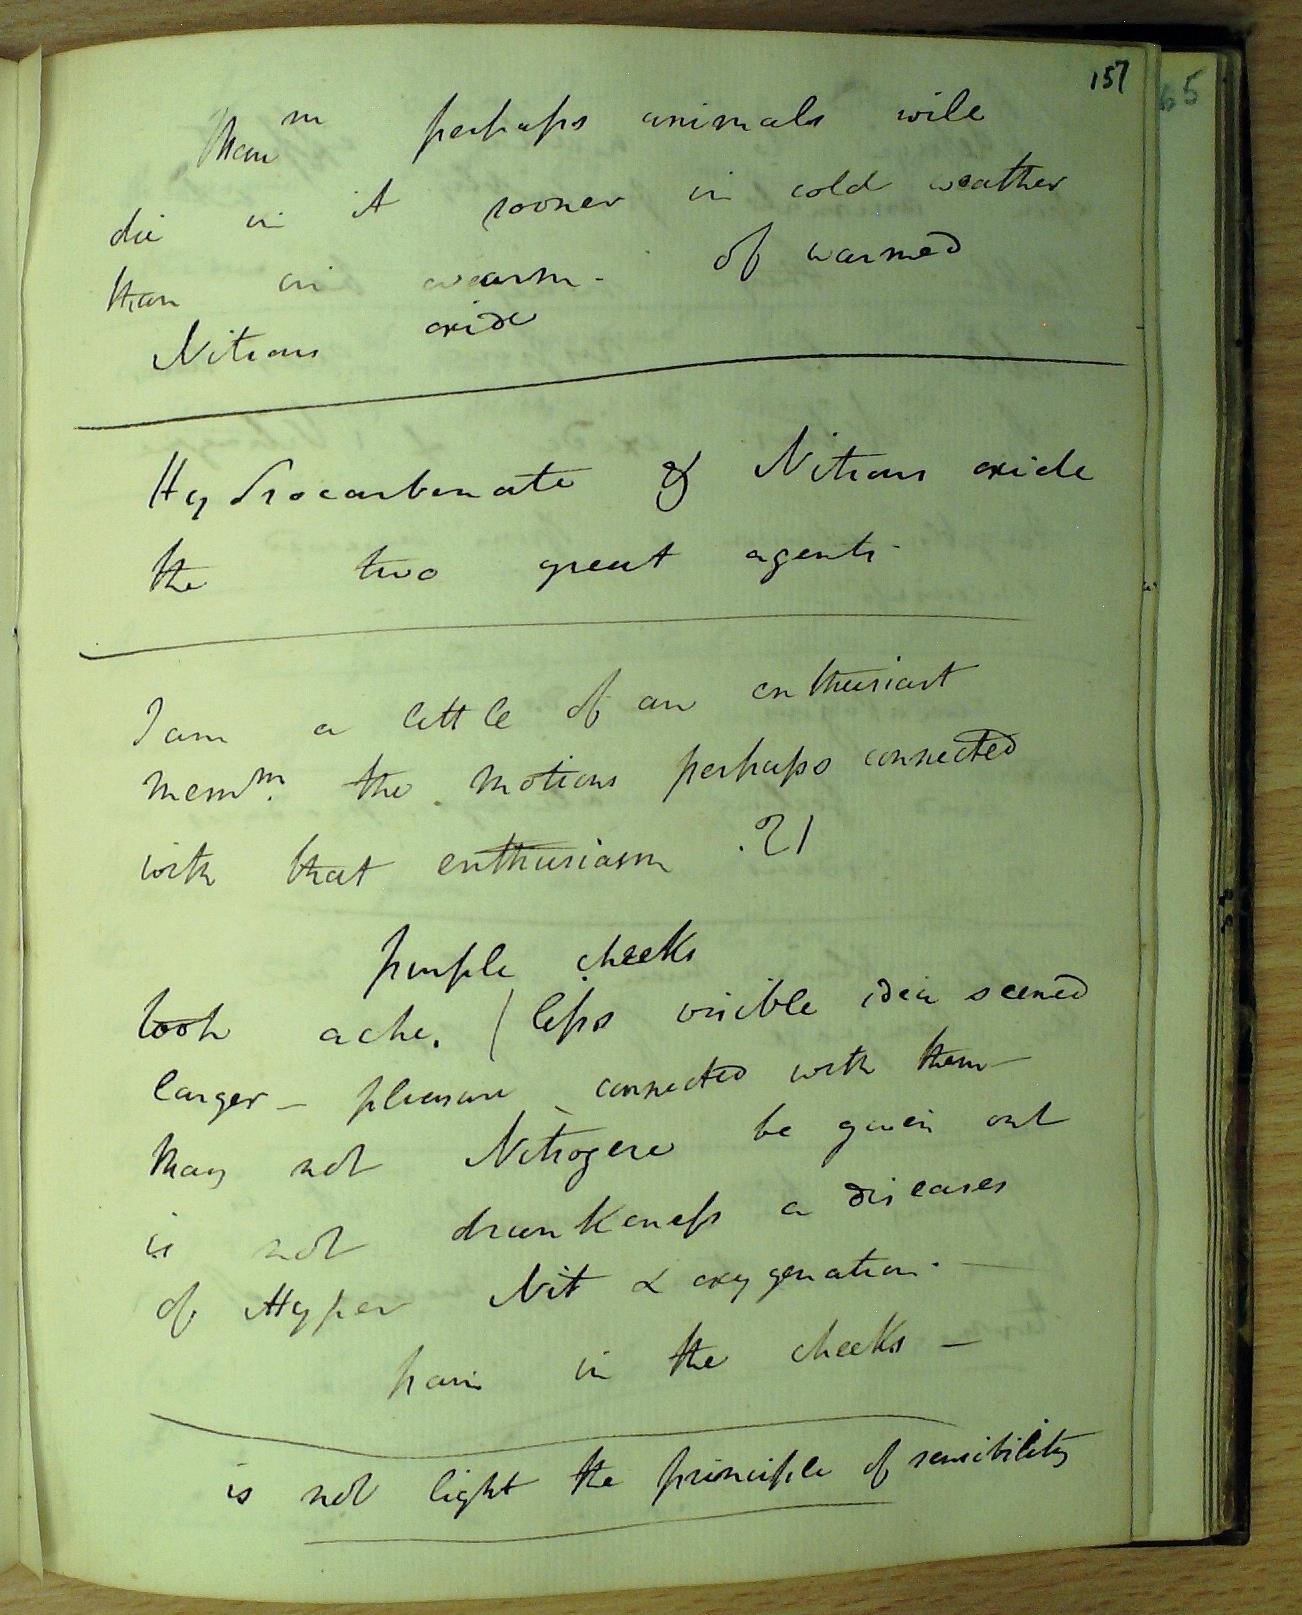 157
65
Mem m perhaps animals will
die in it sooner in cold weather
than in warm - of warmed
Nitrous oxide
Hydrocarbonate & Nitrous oxide
the two great agents -
I am a little of an enthusiast
memm. the motions perhaps connected
with that enthusiasm .?!
purple cheeks
tooth ache. / less visible idea seemed
larger - pleasure connected with them -
May not Nitrogene be given out
is not drunkeness a diseases
of Hyper Nit & oxygenation. -
pain in the cheeks -
is not light the principle of sensibility